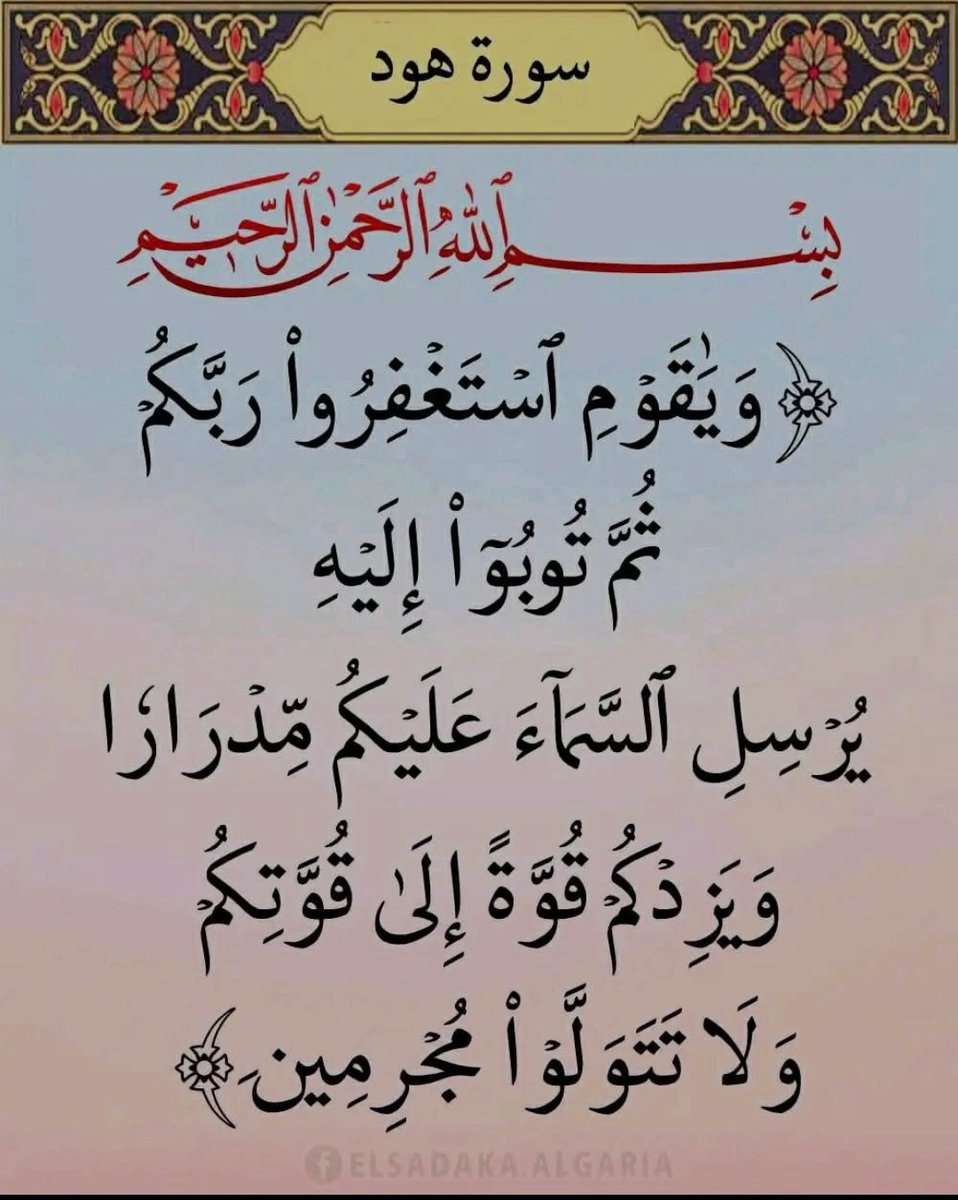 سورة هود
بِسْمِ ٱللَّهِ ٱلرَّحْمَٰنِ ٱلرَّحِيمِ
﴿وَيَٰقَوْمِ ٱسْتَغْفِرُوا۟ رَبَّكُمْ
ثُمَّ تُوبُوٓا۟ إِلَيْهِ
يُرْسِلِ ٱلسَّمَآءَ عَلَيْكُم مِّدْرَارًا
وَيَزِدْكُمْ قُوَّةً إِلَىٰ قُوَّتِكُمْ
وَلَا تَتَوَلَّوْا۟ مُجْرِمِينَ﴾
ELSADAKA.ALGARIA